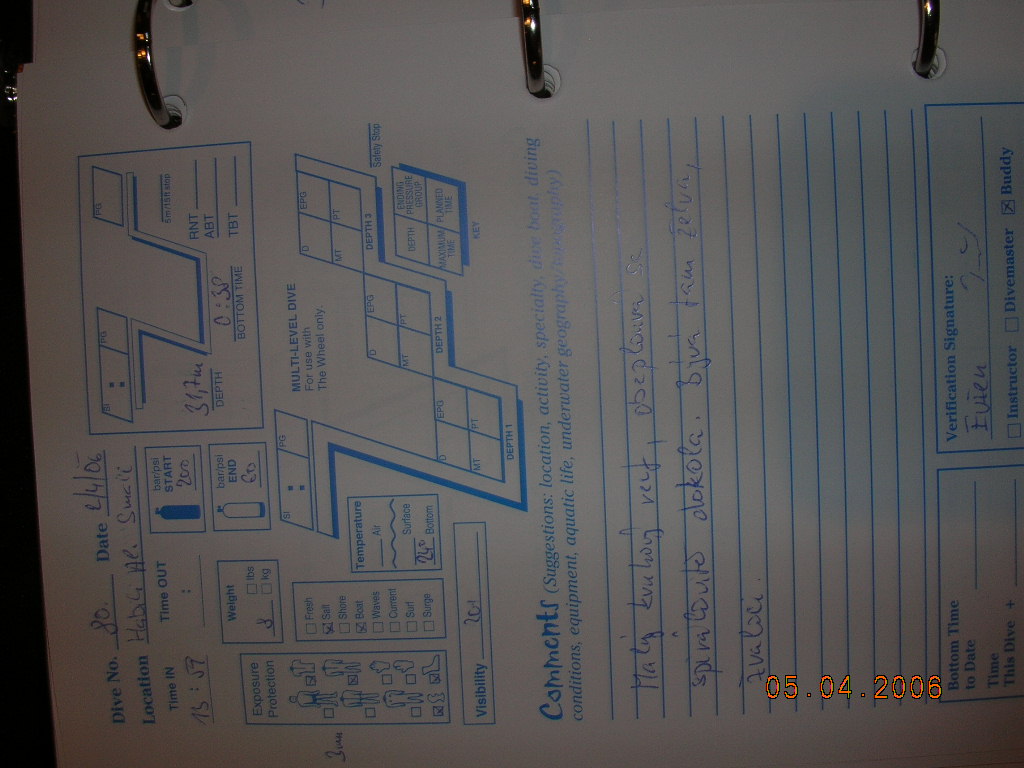 Dive No. 80. Date 4/4/06
Location Habili Ali. Smaii
Time IN
13 : 57
Time OUT
:
bar/psi
START
200
bar/psi
END
60
SI
:
PG
PG
31,7m
DEPTH
0:38
BOTTOM TIME
5m/15ft stop
RNT
ABT
TBT
Exposure
Protection
3mm
Weight
8
lbs
kg
Fresh
Salt
Shore
Boat
Waves
Current
Surf
Surge
Temperature
Air
Surface
24° Bottom
Visibility 20
MULTI-LEVEL DIVE
For use with
The Wheel only.
SI
:
PG
D
EPG
MT
PT
DEPTH 1
D
EPG
MT
PT
DEPTH 2
D
EPG
MT
PT
DEPTH 3
Safety Stop
DEPTH
ENDING PRESSURE GROUP
MAXIMUM TIME
PLANNED TIME
KEY
Comments (Suggestions: location, activity, specialty, dive boat, diving
conditions, equipment, aquatic life, underwater geography/topography)
Malý kruhový reef, obeplouvá se
spirálovitě dokola. Bývá tam želva,
žraloci.
Bottom Time
to Date
Time
This Dive +
Verification Signature:
Evien
Instructor
Divemaster
Buddy
05.04.2006